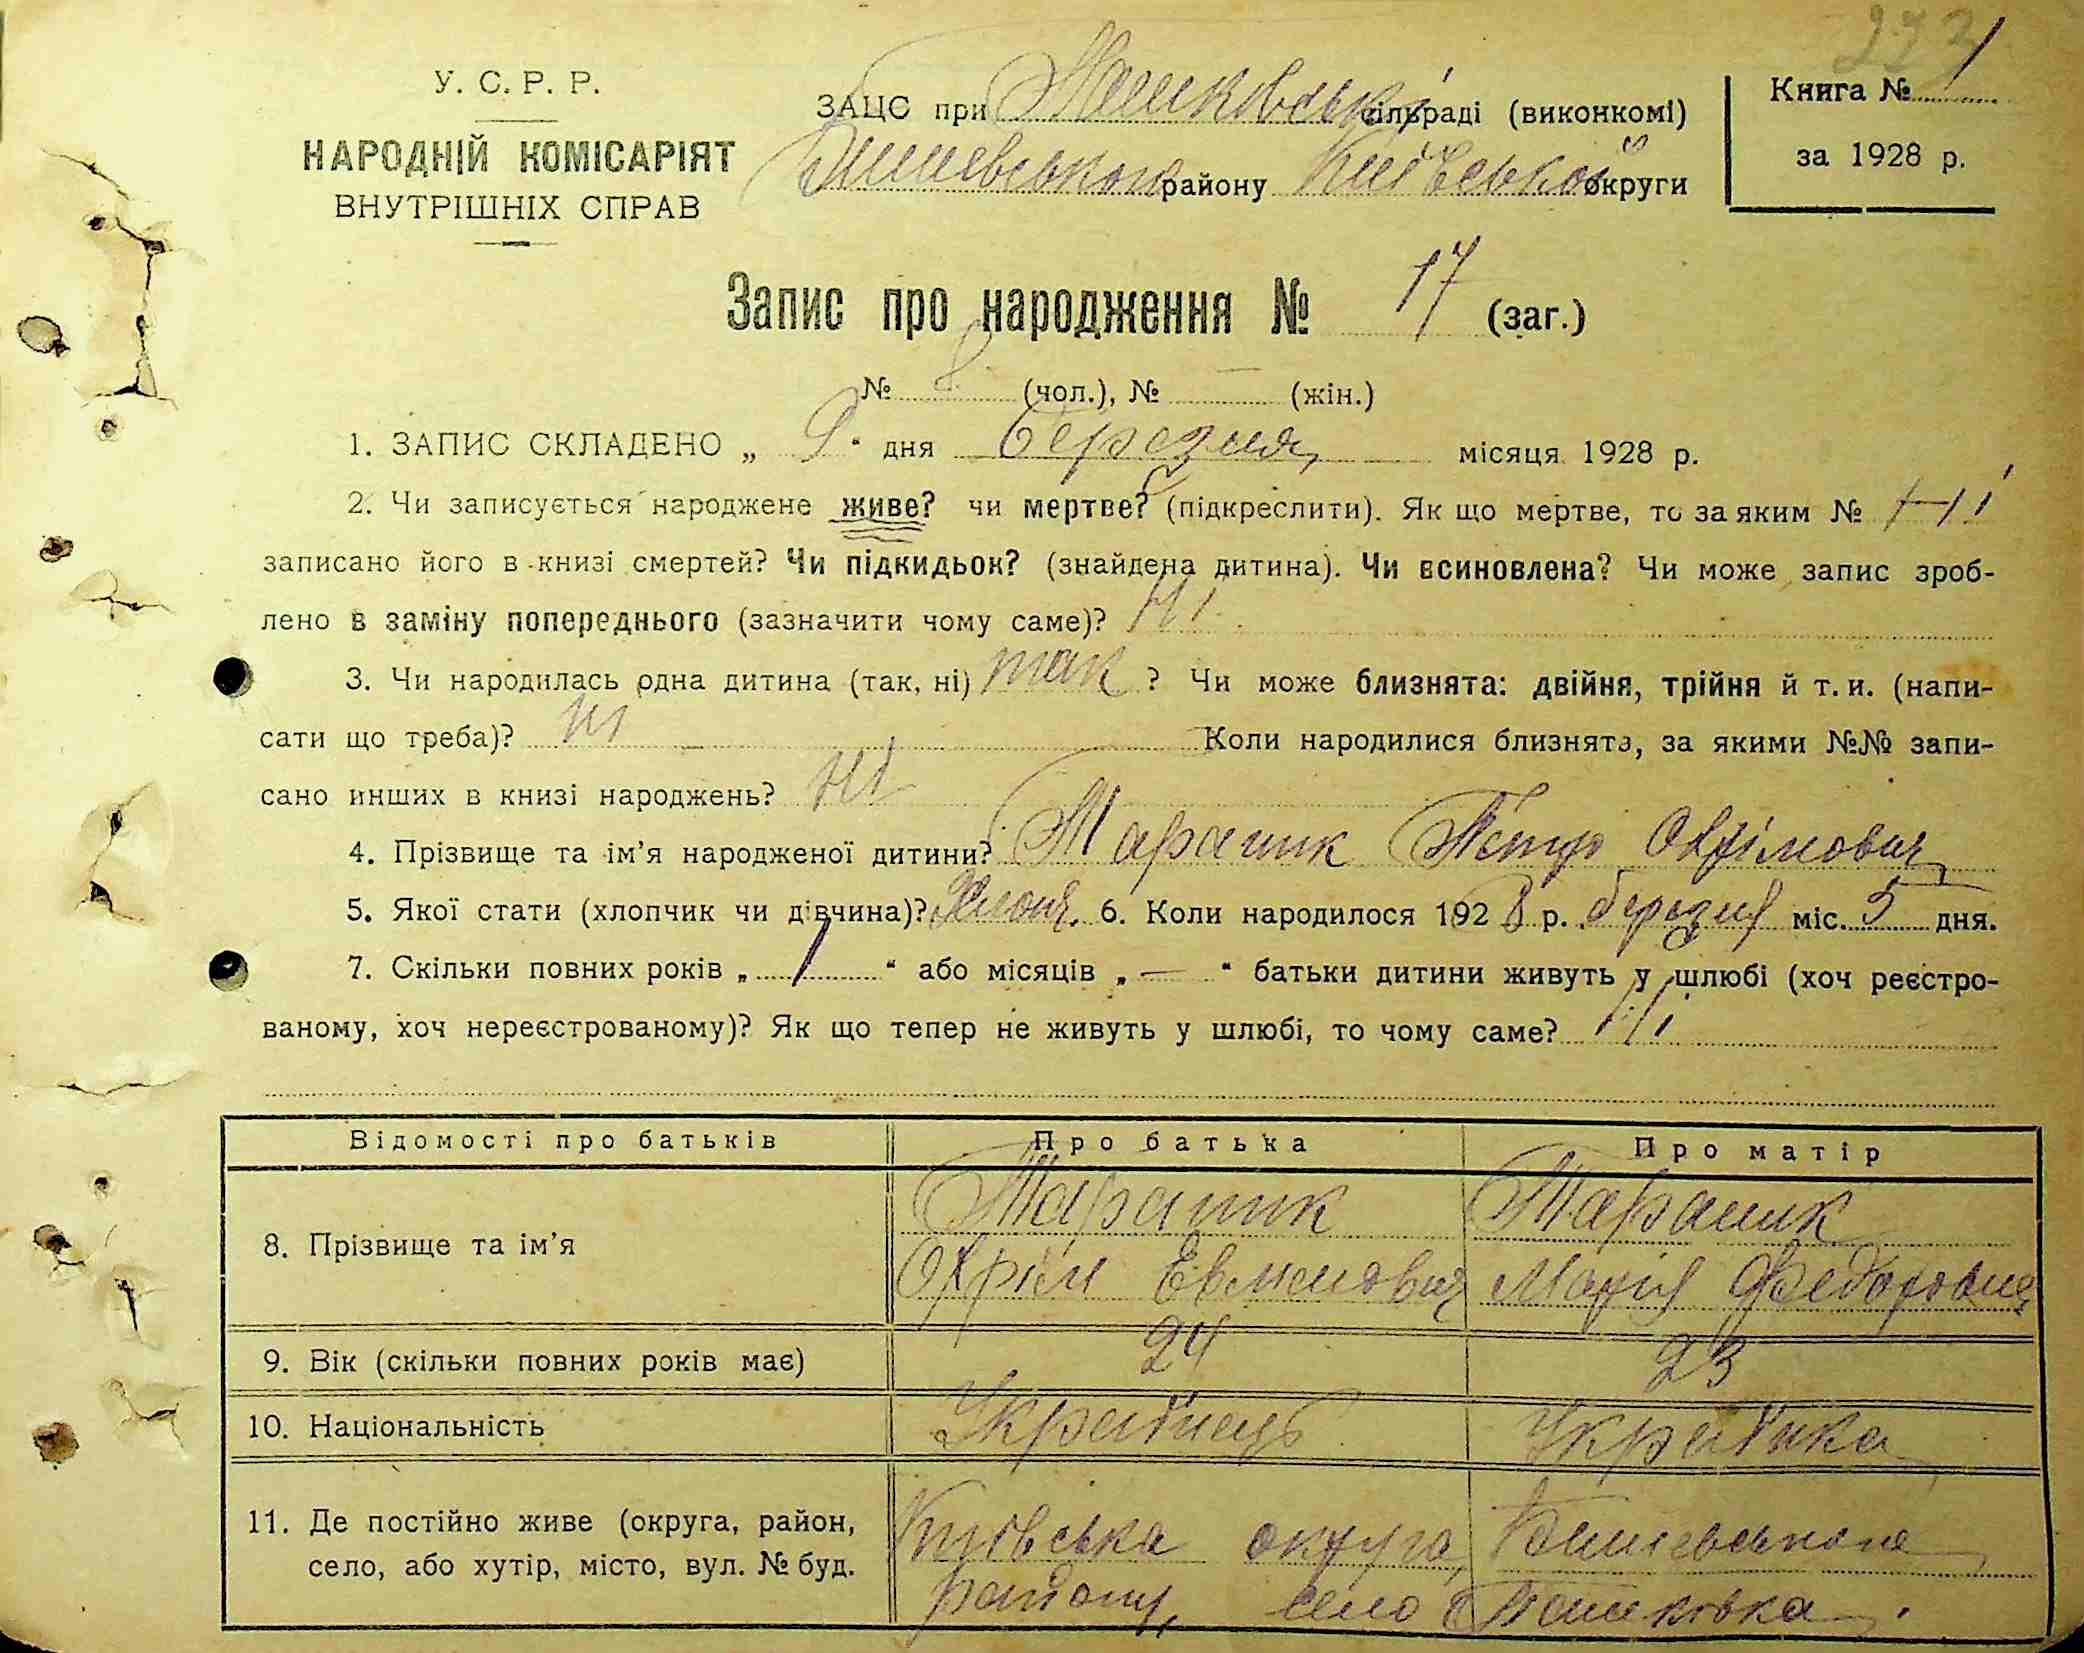 223
У. С. Р. Р.
НАРОДНІЙ КОМІСАРІЯТ
ВНУТРІШНІХ СПРАВ
ЗАЦС при Пашковській сільраді (виконкомі)
Бишевського району Київської округи
Книга № 1
за 1928 р.
Запис про народження № 17 (заг.)
№ 8 (чол.), № — (жін.)
1. ЗАПИС СКЛАДЕНО „ 9 " дня березня місяця 1928 р.
2. Чи записується народжене живе? чи мертве? (підкреслити). Як що мертве, то за яким № ні
записано його в книзі смертей? Чи підкидьок? (знайдена дитина). Чи всиновлена? Чи може запис зроб-
лено в заміну попереднього (зазначити чому саме)? ні
3. Чи народилась одна дитина (так, ні) так ? Чи може близнята: двійня, трійня й т. и. (напи-
сати що треба)? ні Коли народилися близнята, за якими №№ запи-
сано инших в книзі народжень? ні
4. Прізвище та ім'я народженої дитини? Таращук Петро
5. Якої стати (хлопчик чи дівчина)? Хлопч. 6. Коли народилося 1928 р. березня міс. 5 дня.
7. Скільки повних років „ 1 " або місяців „ — " батьки дитини живуть у шлюбі (хоч реєстро-
ваному, хоч нереєстрованому)? Як що тепер не живуть у шлюбі, то чому саме? ні
Відомості про батьків Про батька Про матір
8. Прізвище та ім'я Таращук Таращук
Охрім Марія Федоровна
9. Вік (скільки повних років має) 24 23
10. Національність Українець Українка
11. Де постійно живе (округа, район, Київська округа, Бишевського
село, або хутір, місто, вул. № буд. району, село Пашковка.